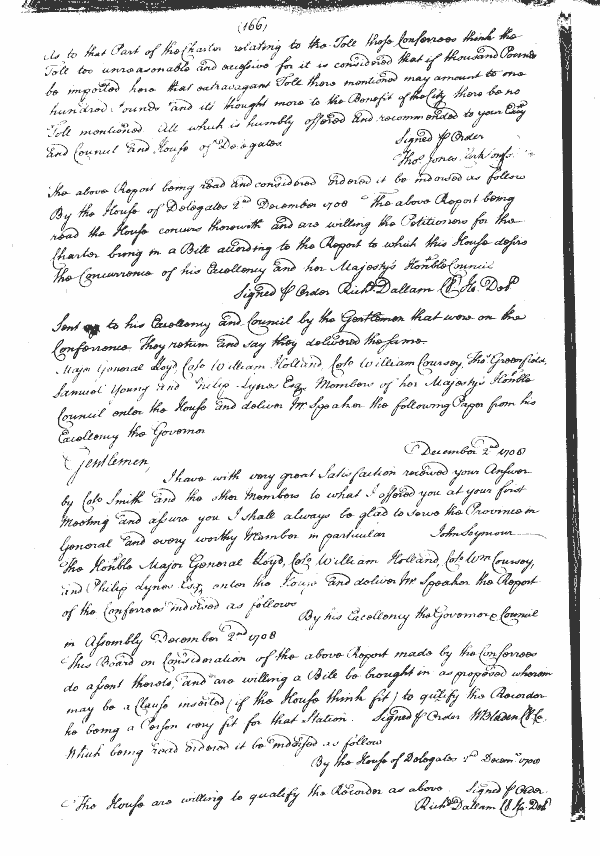 (166)
As to that Part of the Charter relating to the Toll those Conferrees think the
Toll too unreasonable and excessive for it is considered that if thousand Pounds
be imported here that extravagant Toll there mentioned may amount to one
hundred Pounds and it's thought more to the Benefit of the City there be no
Toll mentioned All which is humbly offered and recommended to your Exty
and Council and House of Delegates.
Signed p Order
Thos Jones Clk Conf.
The above Report being read and considered ordered it be indorsed as follow
By the House of Delegates 2nd December 1708 The above Report being
read the House concurs therewith and are willing the Petitioners for the
Charter bring in a Bill according to the Report to which this House desire
the Concurrence of his Excellency and her Majesty's Honble Council
Signed p Order Richd Dallam Cl Ho. Delo
Sent to his Excellency and Council by the Gentlemen that were on the
Conference They return and say they delivered the same.
Major General Lloyd, Colo William Holland, Colo William Coursey, Tho: Greenfield,
Samuel Young and Philip Lynes Esqr Members of her Majesty's Honble
Council enter the House and deliver Mr Speaker the following Paper from his
Excellency the Governor
December 2nd 1708
Gentlemen,
I have with very great Satisfaction received your Answer
by Colo Smith and the other Members to what I offered you at your first
Meeting and assure you I shall always be glad to serve the Province in
General and every worthy Member in particular John Seymour
The Honble Major General Lloyd, Colo William Holland, Colo Wm Coursey,
and Philip Lynes Esqr, enter the House and deliver Mr Speaker the Report
of the Conferrees indorsed as follows
By his Excellency the Governor & Council
in Assembly December 2nd 1708
This Board on Consideration of the above Report made by the Conferrees
do assent thereto, and are willing a Bill be brought in as proposed wherein
may be a Clause inserted (if the House think fit) to qualify the Recorder
he being a Person very fit for that Station. Signed p Order W Bladen Cl Co.
Which being read ordered it be indorsed as follow
By the House of Delegates Decemr 1708
The House are willing to qualify the Recorder as above Signed p Order
Richd Dallam Cl Ho: Delo